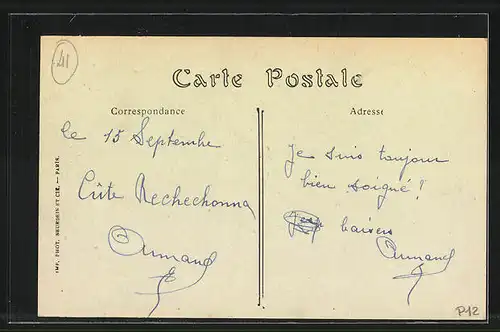 41
Carte Postale
Correspondance
Adresse
le 15 Septembre
Armand
Je suis toujour
bien soigné !
baisers
Armand
IMP. PHOT. NEURDEIN ET CIE. — PARIS.
P12